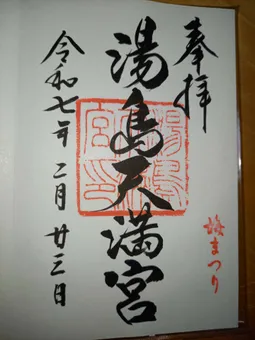 奉拝
湯島天満宮
梅まつり
令和七年二月廿三日